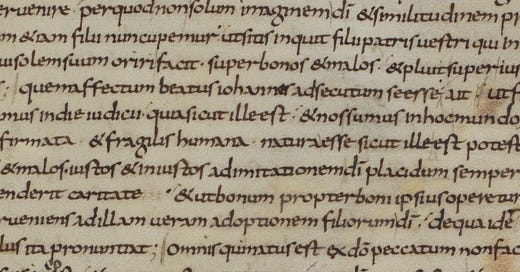 ervenire · perquod non solum imaginem di & similitudinem pi
m & iam filii nuncupemur · ut sitis inquit filii patris uestri qui in
ui solem suum oriri facit · super bonos & malos · & pluit super ius
quem affectum beatus iohannes adsecutum se esse · ait · ut f
amus in die iudicii · quia sicut ille est · & nos sumus in hoc mundo
firmata · & fragilis humana · natura esse sicut ille est potest
& malos · iustos & iniustos ad imitationem di placidum semper
enderit caritate · & ut bonum propter boni ipsius operetur
rueniens ad illam ueram adoptionem filiorum di · de qua ide
lus ita pronuntiat ; Omnis qui natus est ex do peccatum non fac